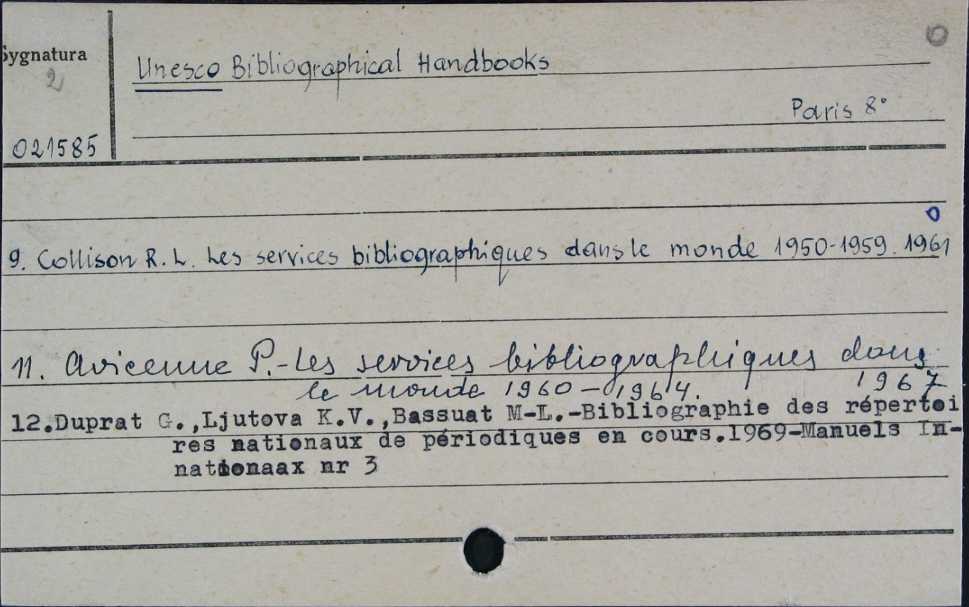 Sygnatura
2
021585
Unesco Bibliographical Handbooks
0
Paris 8°
0
9. Collison R. L. Les services bibliographiques dans le monde 1950-1959. 1961
11. Avicenne P.-Les services bibliographiques dans
le monde 1960-1964. 1967
12.Duprat G.,Ljutova K.V.,Bassuat M-L.-Bibliographie des répertoi
res nationaux de périodiques en cours.1969-Manuels In-
nationaax nr 3